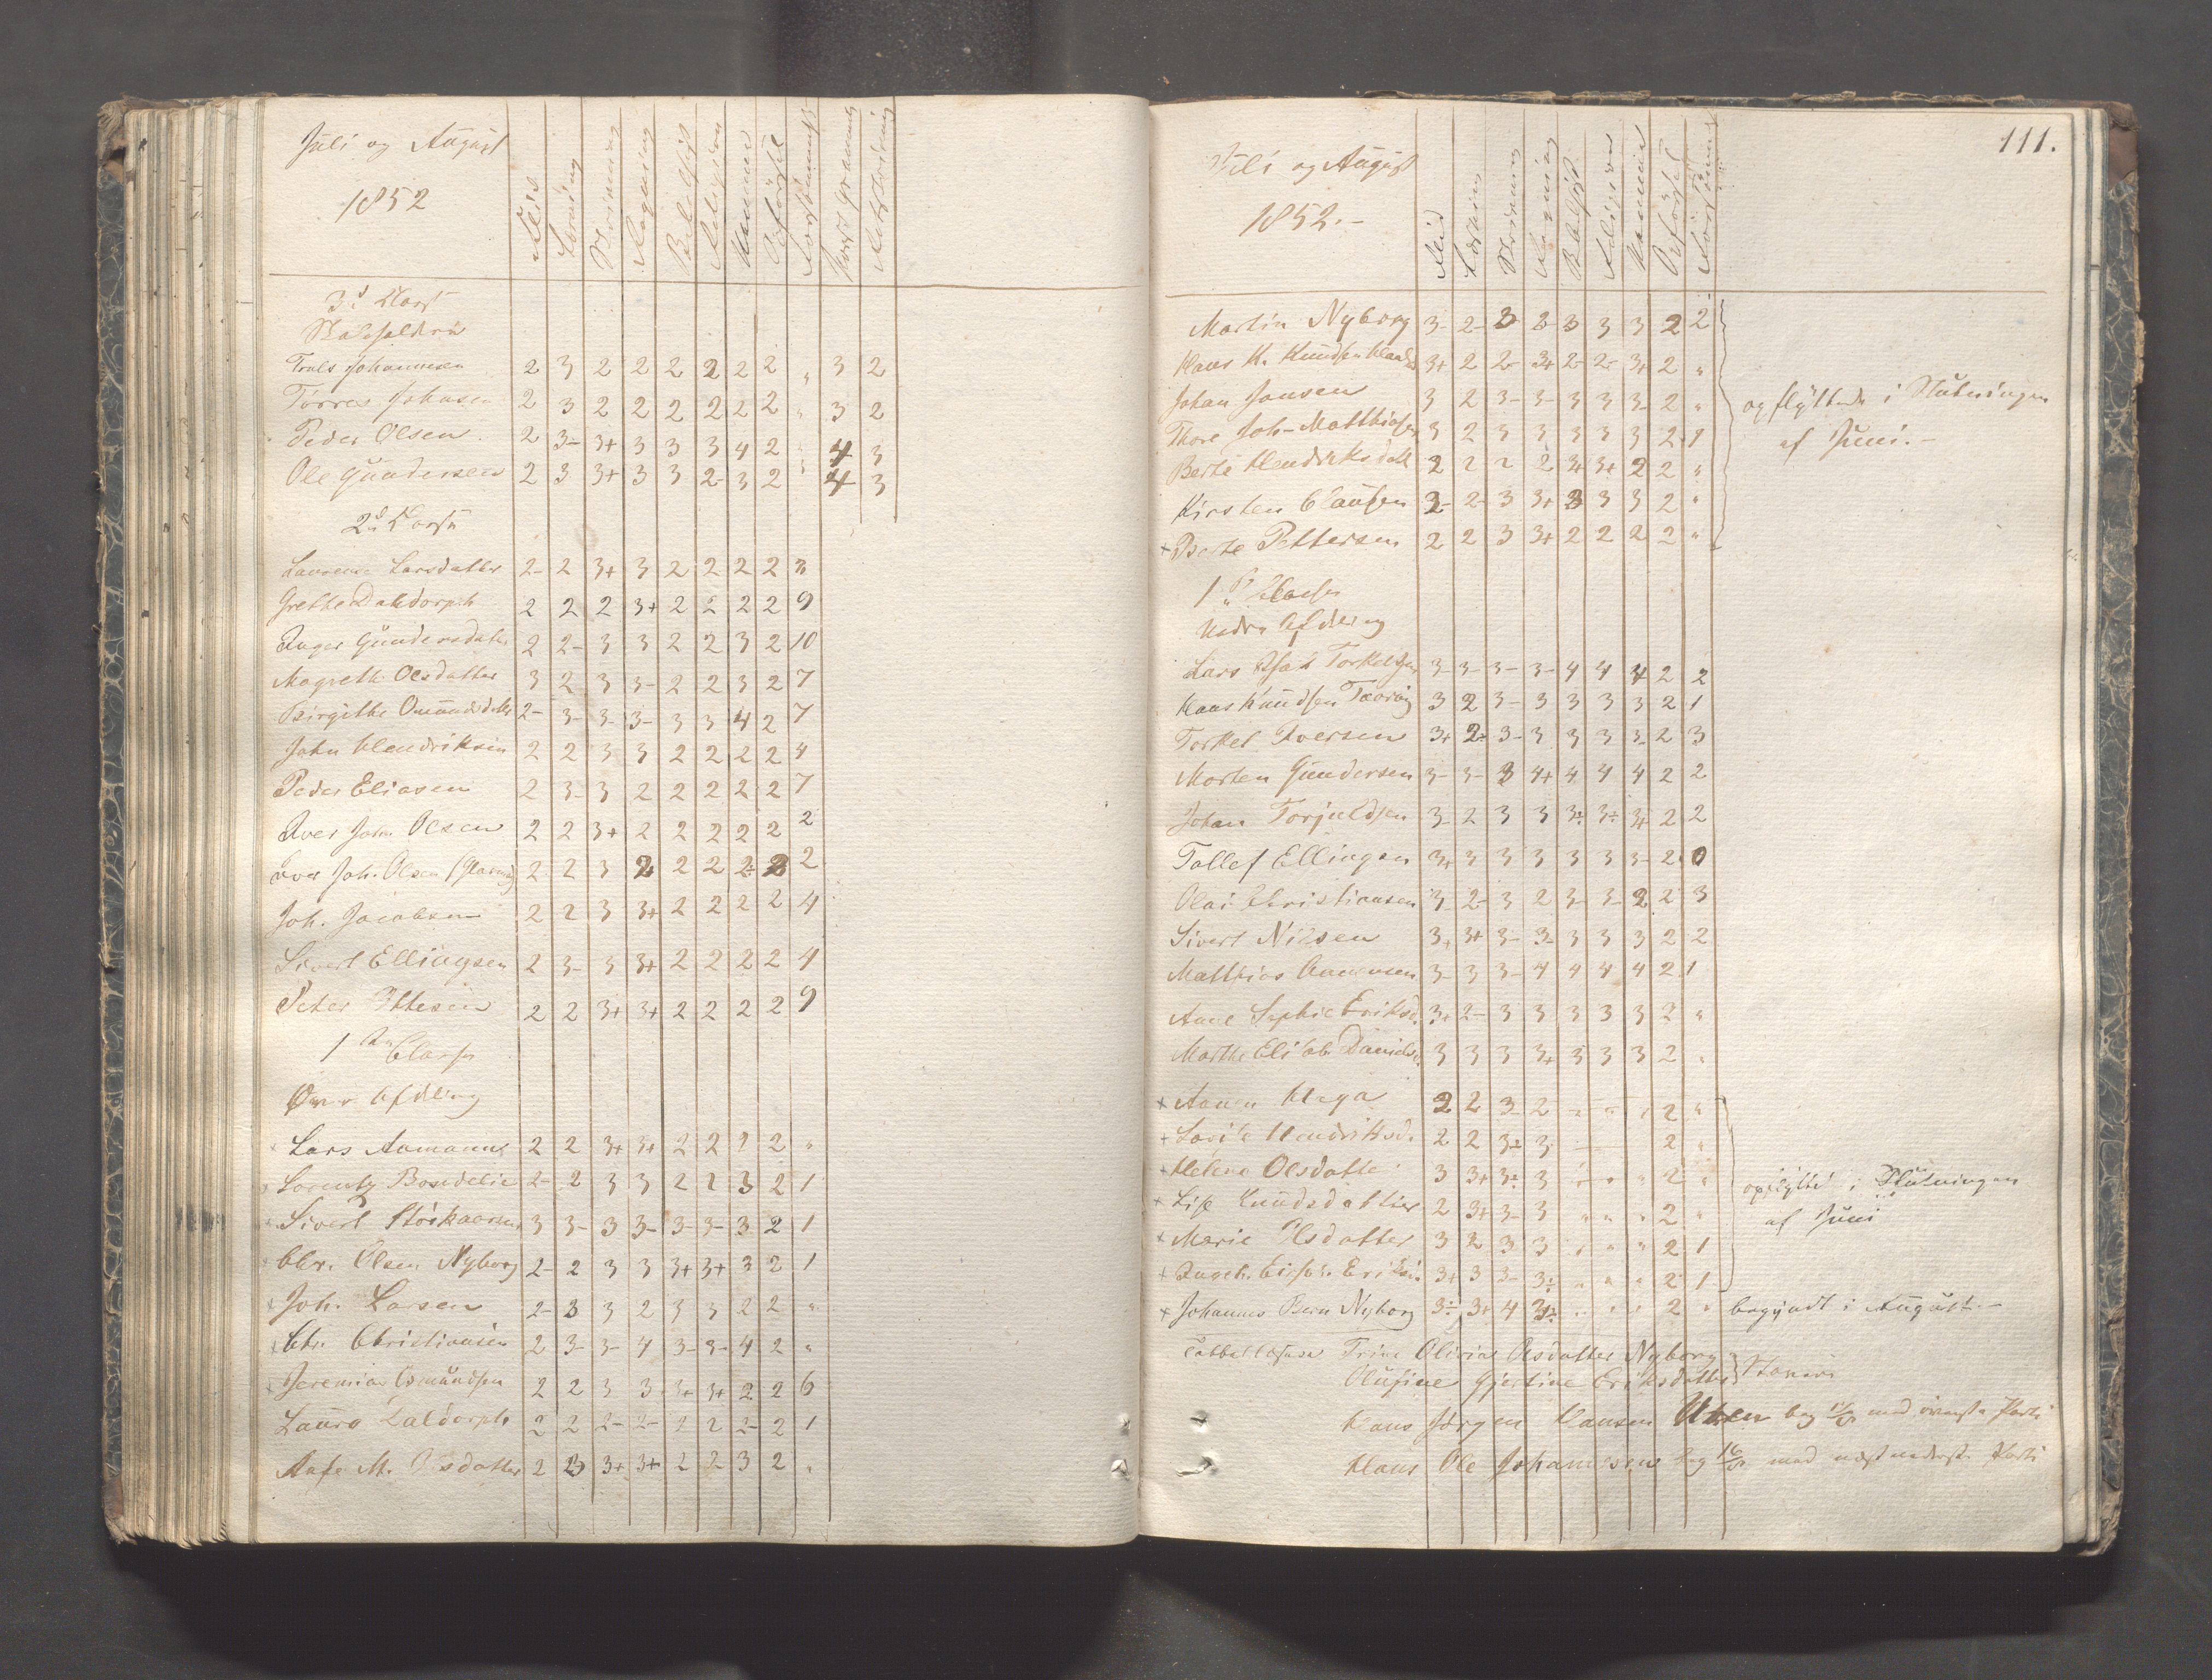 Juli og August
1852
Flid
Læsning
Skrivning
Regning
Religion
Opførsel
3die Classe
Troels Johannesen 2 3 2 2 2 2 2 2 " 3 2
Tørres Johnsen 2 3 2 2 2 2 2 2 " 3 2
Peder Olsen 2 3- 3+ 3 3 3 4 2 " 4 3
Ole Gundersen 2 3 3+ 3 3 2- 3 2 " 4 3
2den Classe
Laurense Larsdatter 2- 2 3+ 3 2 2 2 2
Grethe Daldorph 2 2 2 3+ 2 2 2 2 9
Inger Gundersdatter 2 2- 3 3 2 2 3 2 10
Magrethe Olsdatter 3 2 3 3- 2 2 3 2 7
Birgithe Omundsdatter 2- 3- 3- 3- 3 3 4 2 7
John Hendriksen 2 2 3 3 2 2 2 2 4
Peder Eliasen 2 3- 3 2 2 2 2 2 7
Iver Joh. Olsen 2 2 3+ 2 2 2 2 2 2
Iver Joh. Olsen 2 2 3 2 2 2 2 2
Joh. Jacobsen 2 2 3 3+ 2 2 2 2 4
Sivert Ellingsen 2 3- 3 3+ 2 2 2 2 4
Peter Ittesen 2 2 3+ 3+ 2 2 2 2 9
1ste Classe
Øvre Afdeling
Lars Aamanns 2 2 3+ 3+ 2 2 2 2 "
Lorentz Bosedelie 2- 2 3 3 2 2 3 2 1
Sivert 3 3- 3 3- 3- 3- 3 2 1
Chr. Olsen Nyborg 2- 2 3 3 3+ 3+ 3 2 1
Joh. Larsen 2- 3 3 2 3 3 2 2 "
Chr. Christiansen 2 3- 3- 4 3- 3- 4 2 "
Jeremias Osmundsen 2 2 3 3 3+ 3+ 2 2 6
Laura Daldorph 2 2 2- 2- 2 2 2- 2 1
M. Olsdatter 2 3 3+ 3+ 2 2 3 2 "
111.
Juli og August
1852.-
Flid
Læsning
Skrivning
Regning
Religion
Opførsel
Martin Nyborg 3- 2- 3 3 3 3 3 2 2
Hans K. Knudsen 3+ 2 2- 3+ 2- 2- 3+ 2 "
Johan Jansen 3 2 3- 3- 3 3 3- 2 "
Thore Joh. Matthiasen 3 2 3 3 3 3 3 2 1
Berte Hendriksdatt 2 2 2 2 3+ 3+ 2 2 "
Kirsten Clausen 3- 2- 3 3+ 3 3 3 2 "
+ Berte Pettersen 2 2 3 3+ 2 2 2 2 "
opflyttede i Slutningen
af Juni.-
1ste Classe
Nedre Afdeling
Lars Torkelsen 3- 3- 3- 3- 4 4 4 2 2
Hans Knudsen 3 2 3- 3 3 3 3 2 1
Torkel Iversen 3+ 2 3- 3 3 3 3- 2 3
Morten Gundersen 3- 3- 3 4+ 4 4 4 2 2
Johan Torjuldsen 3- 2 3 3 3÷ 3÷ 3+ 2 2
Tollef Ellingsen 3+ 3 3 3 3 3 3- 2 0
Olai Christiansen 3 2- 3 2 3- 3- 2 2 3
Sivert Nilsen 3+ 3+ 3- 3- 3 3 3 2 2
Matthias 3- 3 3- 4 4 4 4 2 1
Ane Sophie Eriksd. 3+ 2- 3 3 3 3 3 2 "
Marthe Elisab. Danielsd. 3 3 3 3+ 3 3 3 2 "
+ Haga 2 2 3- 2 " " " 2 "
+ Hendriksd. 2 2 3÷ 3 2 "
+ Helene Olsdatter 3 3+ 3÷ 3 " " " 2 "
+ Lise Knudsdatter 2 3+ 3- 3 " " " 2 "
+ Marie Olsdatter 3 2 3 3 " " " 2 1
+ Eriksen 3+ 3 3- 3÷ " " " 2 1
opflyttet i Slutningen
af Juni
+ Johannes Bern Nyborg 3÷ 3+ 4 " " " 2 " begyndt i August.-
Trine Olivia Olsdatter Nyborg
Gjertine Eriksdatter
Hans Jørgen Hansen Uteen beg med øverste Parti
Hans Ole Johannesen beg 16/8 med næstnederste Parti